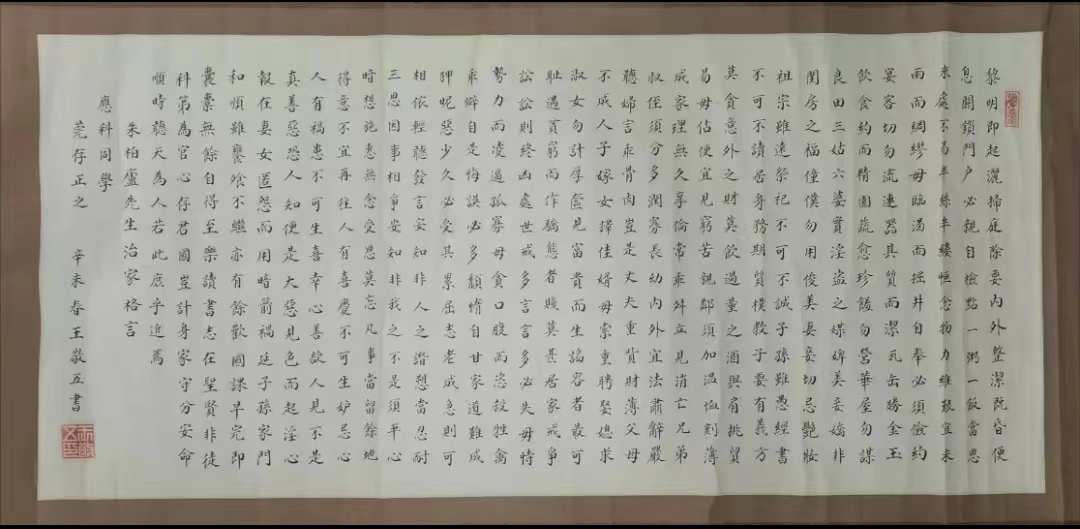 黎明即起灑掃庭除要內外整潔既昏便
息關鎖門户必親自檢點一粥一飯當思
來處不易半絲半縷恒念物力維艱宜未
雨而綢繆毋臨渴而掘井自奉必須儉約
宴客切勿流連器具質而潔瓦缶勝金玉
飲食約而精園蔬愈珍饈勿營華屋勿謀
良田三姑六婆實淫盜之媒婢美妾嬌非
閨房之福僮僕勿用俊美妻妾切忌艷妝
祖宗雖遠祭祀不可不誠子孫雖愚經書
不可不讀居身務期質樸教子要有義方
莫貪意外之財莫飲過量之酒與肩挑貿
易毋佔便宜見窮苦親鄰須加温恤刻薄
成家理無久享倫常乖舛立見消亡兄弟
叔侄須分多潤寡長幼內外宜法肅辭嚴
聽婦言乖骨肉豈是丈夫重貲財薄父母
不成人子嫁女擇佳婿毋索重聘娶媳求
淑女勿計厚奩見富貴而生諂容者最可
恥遇貧窮而作驕態者賤莫甚居家戒爭
訟訟則終凶處世戒多言言多必失毋恃
勢力而凌逼孤寡毋貪口腹而恣殺牲禽
乖僻自是悔誤必多頹惰自甘家道難成
狎昵惡少久必受其累屈志老成急則可
相依輕聽發言安知非人之譖愬當忍耐
三思因事相爭安知非我之不是須平心
時想施惠無念受恩莫忘凡事當留餘地
得意不宜再往人有喜慶不可生妒忌心
人有禍患不可生喜幸心善欲人見不是
真善惡恐人知便是大惡見色而起淫心
報在妻女匿怨而用暗箭禍延子孫家門
和順雖饔飧不繼亦有餘歡國課早完即
囊橐無餘自得至樂讀書志在聖賢非徒
科第為官心存君國豈計身家守分安命
順時聽天為人若此庶乎近焉
朱柏廬先生治家格言
應科同學
莞存正之 辛未春王敬五書